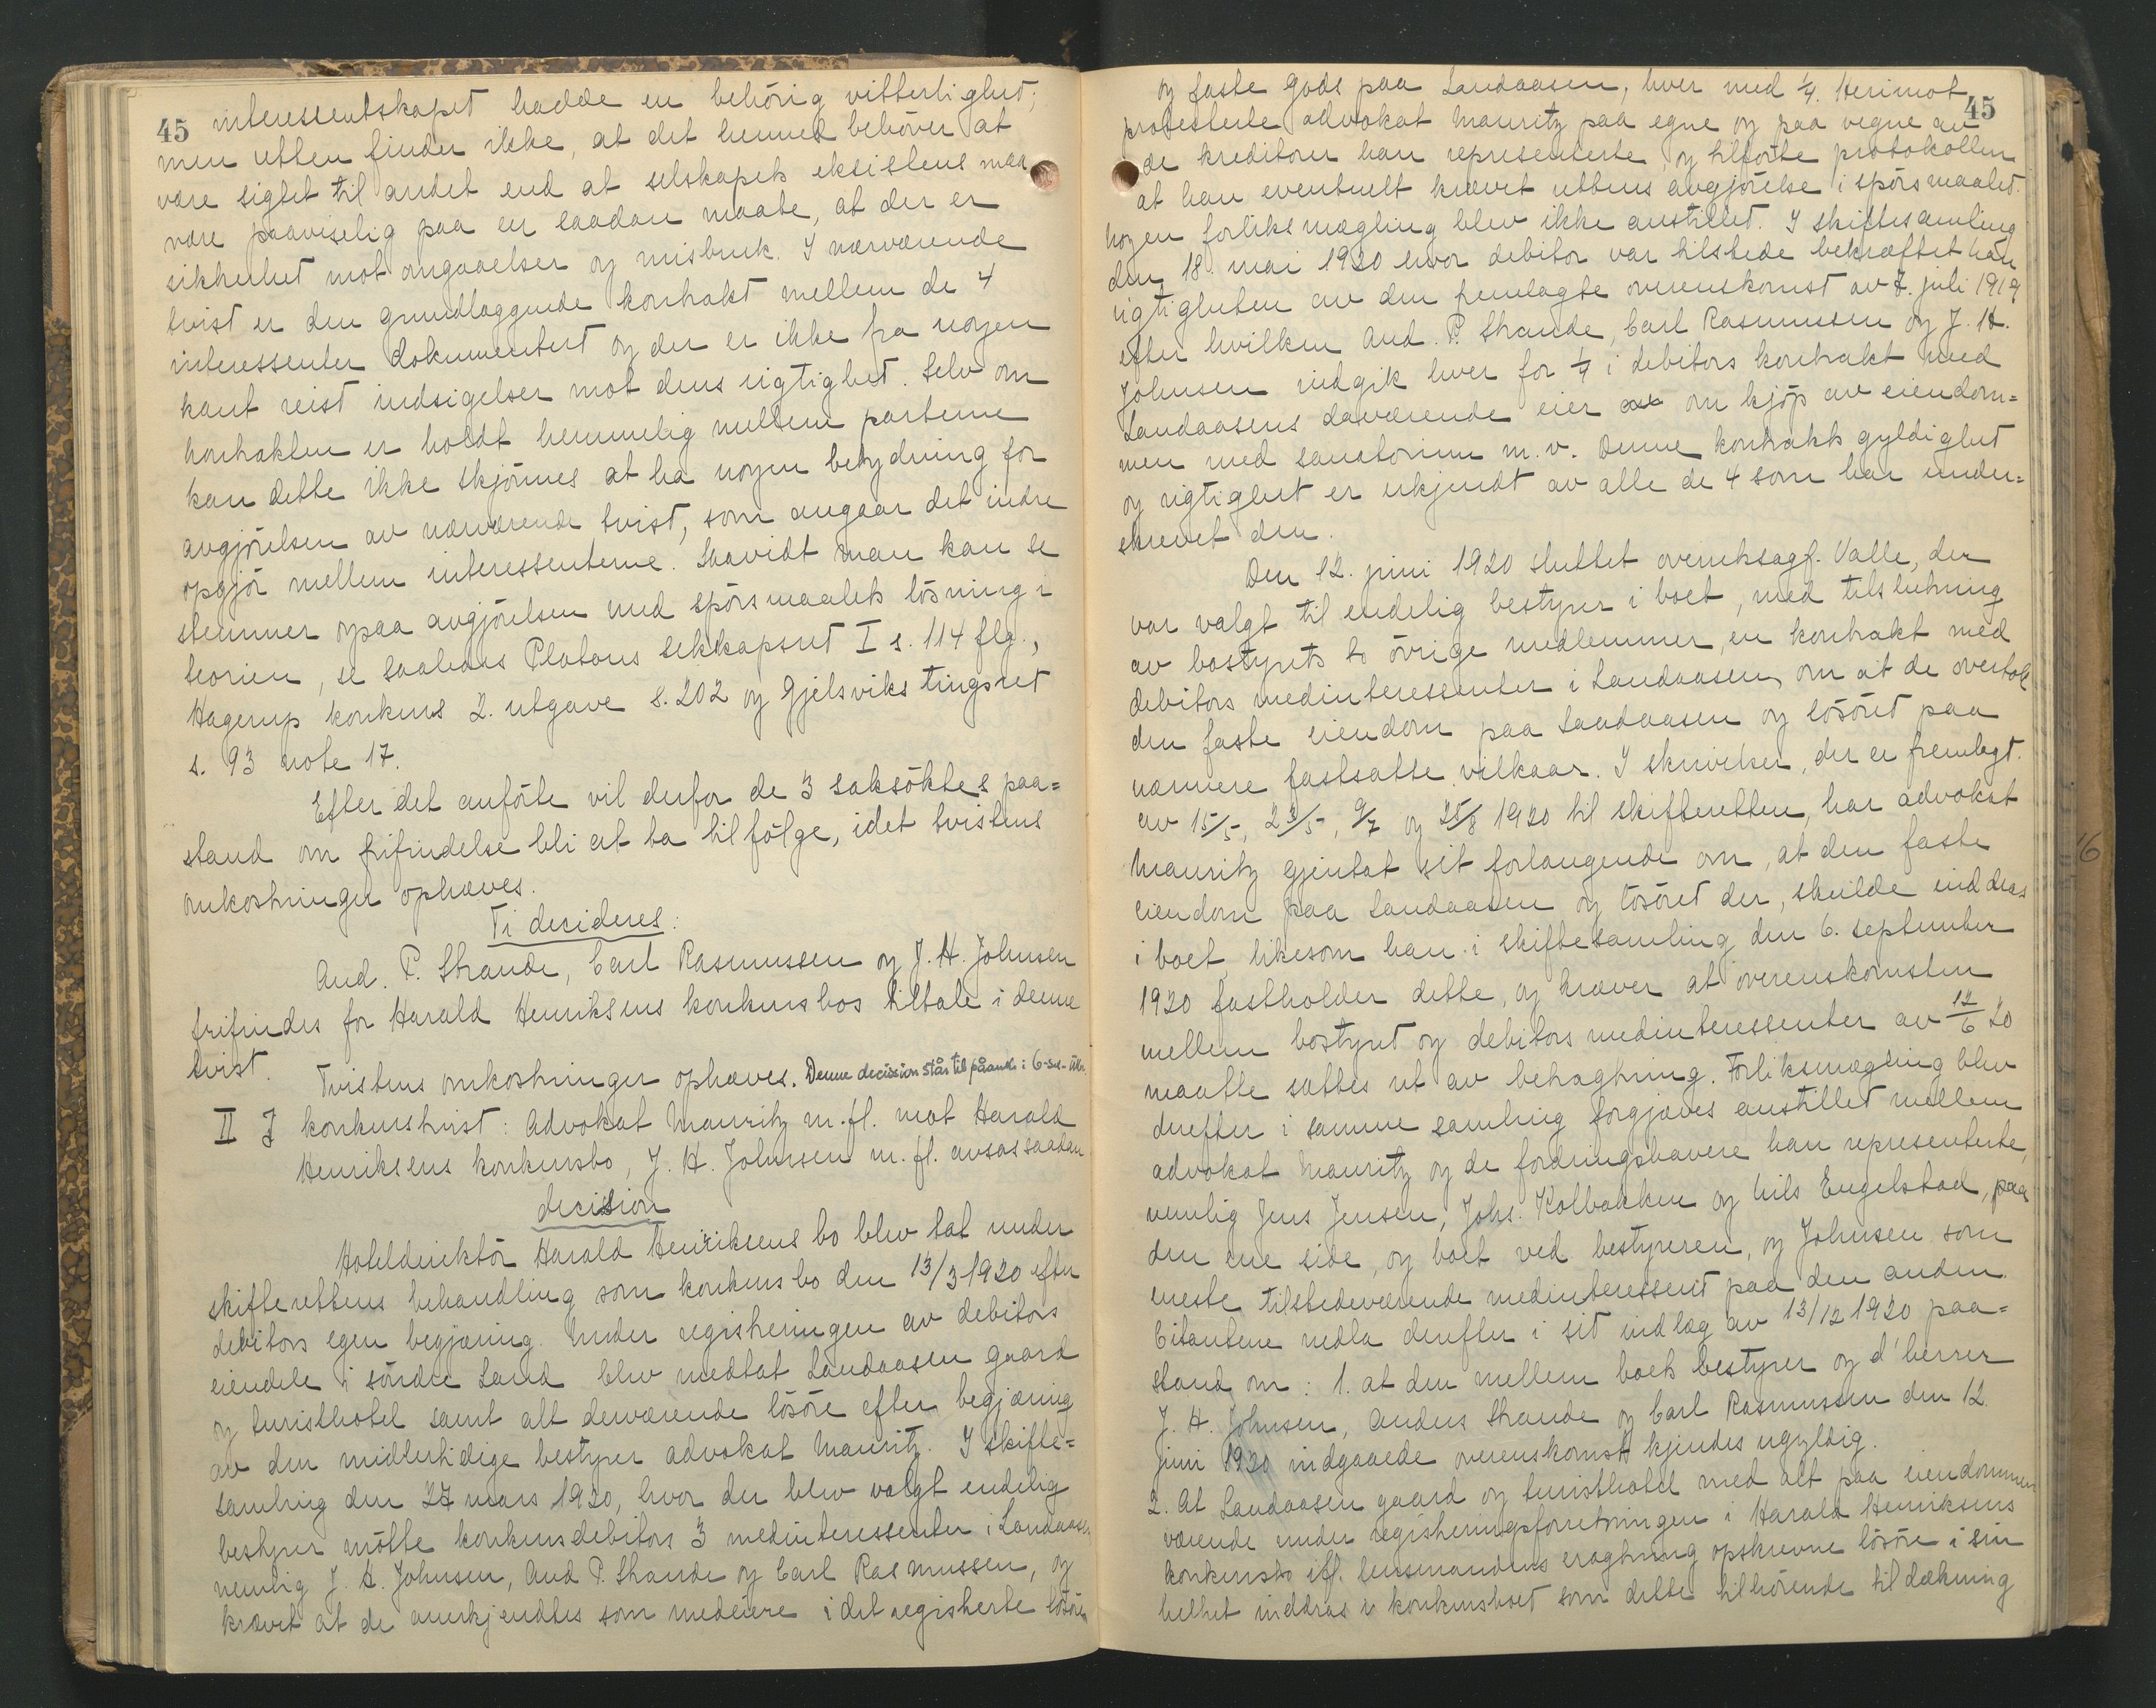 45
interessentskapet hadde en behörig vitterlighet;
men retten finder ikke, at det hermed behöver at
være sigtet til andet end at selskapets eksistens maa
være paaviselig paa en saadan maate, at der er
sikkerhet mot omgaaelser og misbruk. I nærværende
tvist er den grundlæggende kontrakt mellem de 4
interessenter dokumentert og der er ikke fra nogen
kant reist indsigelser mot dens rigtighet. Selv om
kontrakten er holdt hemmelig mellem parterne
kan dette ikke skjönnes at ha nogen betydning for
avgjörelsen av nærværende tvist, som angaar det indre
opgjör mellem interessenterne. Saavidt man kan se
stemmer ogsaa avgjörelsen med spörsmaalets lösning i
teorien, se saaledes Platous selskapsret I s. 114 flg.,
Hagerup konkurs 2. utgave s. 202 og Gjelsviks tingsret
s. 93 note 17.
Efter det anförte vil derfor de 3 saksöktes paa=
stand om frifindelse bli at ta tilfölge, idet tvistens
omkostninger ophæves.
Ti decideres:
And. P. Strande, Carl Rasmussen og J. H. Johnsen
frifindes for Harald Henriksens konkursbos tiltale i denne
tvist.
Tvistens omkostninger ophæves. Denne decision står til påanke i 6
II I konkurstvist: Advokat Mauritz m.fl. mot Harald
Henriksens konkursbo, J. H. Johnsen m.fl. avsas saadan
decision
Hoteldirektör Harald Henriksens bo blev tat under
skifterettens behandling som konkursbo den 13/3 1920 efter
debitors egen begjæring. Under registreringen av debitors
eiendele i söndre Land blev medtat Landaasen gaard
og turisthotel samt alt derværende lösöre efter begjæring
av den midlertidige bestyrer advokat Mauritz. I skifte=
samling den 27 mars 1920, hvor der blev valgt endelig
bestyrer mötte konkursdebitors 3 medinteressenter i Landaasen
nemlig J. H. Johnsen, And P. Strande og Carl Rasmussen, og
krævet at de anerkjendtes som medeiere i det registrerte lösöre
45
og faste gods paa Landaasen, hver med 1/4. Herimot
protesterte advokat Mauritz paa egne og paa vegne av
de kreditorer han representerte, og tilförte protokollen
at han eventuelt krævet rettens avgjörelse i spörsmaalet.
Nogen forliksmægling blev ikke anstillet. I skiftesamling
den 18. mai 1920 hvor debitor var tilstede bekræftet han
rigtigheten av den fremlagte overenskomst av 7. juli 1919
efter hvilken And. P. Strande, Carl Rasmussen og J. H.
Johnsen indgik hver for 1/4 i debitors kontrakt med
Landaasens daværende eier om kjöp av eiendom=
men med sanatorium m.v. Denne kontrakts gyldighet
og rigtighet er erkjendt av alle de 4 som har under=
skrevet den.
Den 12. juni 1920 sluttet overretssagf. Valle, der
var valgt til endelig bestyrer i boet, med tilslutning
av bostyrets to övrige medlemmer, en kontrakt med
debitors medinteressenter i Landaasen, om at de overtok
den faste eiendom paa Landaasen og lösöret paa
nærmere fastsatte vilkaar. I skrivelser, der er fremlagt.
av 15/5, 23/5, 9/7 og 25/8 1920 til skifteretten, har advokat
Mauritz gjentat sit forlangende om, at den faste
eiendom paa Landaasen og lösöret der, skulde inddras
i boet likesom han i skiftesamling den 6. september
1920 fastholder dette, og kræver at overenskomsten
mellem bostyret og debitors medinteressenter av 12/6 20
maatte sættes ut av betragtning. Forliksmægling blev
derefter i samme samling forgjæves anstillet mellem
advokat Mauritz og de fordringshavere han representerte,
nemlig Jens Jensen, Johs. Kolbakken og Nils Engelstad, paa
den ene side, og boet ved bestyreren, og Johnsen som
eneste tilstedeværende medinteressent paa den anden.
Citantene nedla derefter i sit indlæg av 13/12 1920 paa=
stand om: 1. at den mellem boets bestyrer og d'herrer
J. H. Johnsen, Anders Strande og Carl Rasmussen den 12.
juni 1920 indgaaede overenskomst kjendes ugyldig.
2. At Landaasen gaard og turisthotel med alt paa eiendommen
værende under registreringsforretningen i Harald Henriksens
konkursbo ifl. lensmandens eragtning opskrevne lösöre i sin
helhet inddras i konkursboet som dette tilhörende til dækning